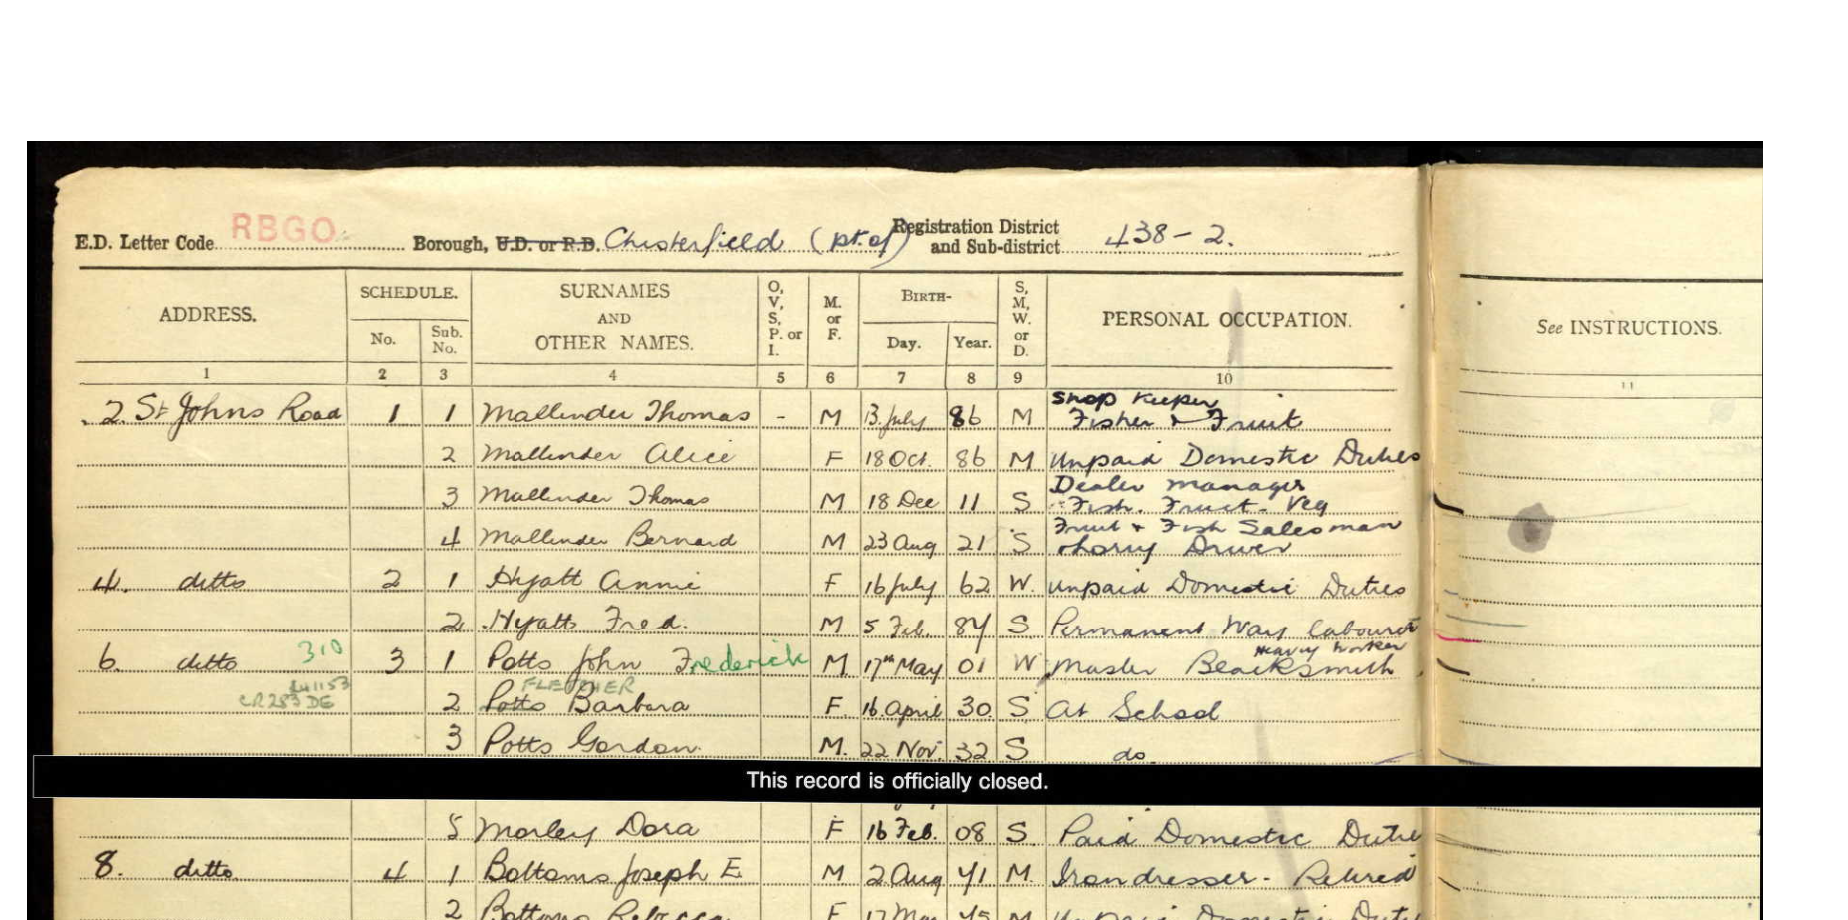 RBGO
E.D. Letter Code Borough, U.D. or R.D. Chesterfield (pt. of) Registration District and Sub-district 438-2.
ADDRESS. SCHEDULE. No. Sub. No. SURNAMES AND OTHER NAMES. O, V, S, P. or I. M. or F. BIRTH- Day. Year. S, M, W. or D. PERSONAL OCCUPATION. See INSTRUCTIONS.
1 2 3 4 5 6 7 8 9 10 11
2 St Johns Road 1 1 Mallinder Thomas - M 13 July 86 M Shop Keeper Fisher & Fruit
2 Mallinder Alice F 18 Oct. 86 M Unpaid Domestic Duties
3 Mallinder Thomas M 18 Dec 11 S Dealer Manager Fish. Fruit - Veg
4 Mallinder Bernard M 23 Aug 21 S Fruit & Fish Salesman Lorry Driver
4. ditto 2 1 Hyatt Annie F 16 July 62 W. Unpaid Domestic Duties
2 Hyatt Fred. M 5 Feb. 84 S Permanent Way Labourer
6. ditto 310 3 1 Potts John Frederick M. 17th May 01 W Master Blacksmith Heavy Worker
CR283 DE 2 FLETCHER Potts Barbara F. 16 April 30 S At School
3 Potts Gordon M. 22 Nov. 32 S do
This record is officially closed.
5 Morley Dora F 16 Feb. 08 S. Paid Domestic Dutie
8. ditto 4 1 Bottoms Joseph E. M 2 Aug 41 M. Irondresser - Retired
2 Bottoms Rebecca F 17 Mar 45 M Unpaid Domestic Duty